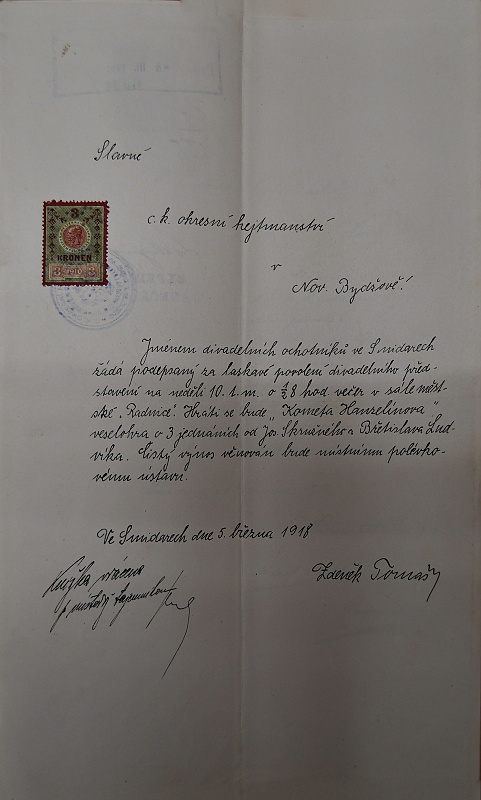 Slavné
3
KRONEN
3 1910 3
c.k. okresní hejtmanství
v
Nov. Bydžově!
Jménem divadelních ochotníků ve Smidarech
žádá podepsaný za laskavé povolení divadelního před-
stavení na neděli 10. t. m. o ½8 hod. večer v sále měst-
ské „Radnice“. Hráti se bude „Kometa Hanzelínova“
veselohra o 3 jednáních od Jos. Skružného a Břetislava Lud-
víka. Čistý výnos věnován bude místnímu polévko-
vému ústavu.
Ve Smidarech dne 5. března 1918
Zdeněk Tomáš
Knížka vrácena